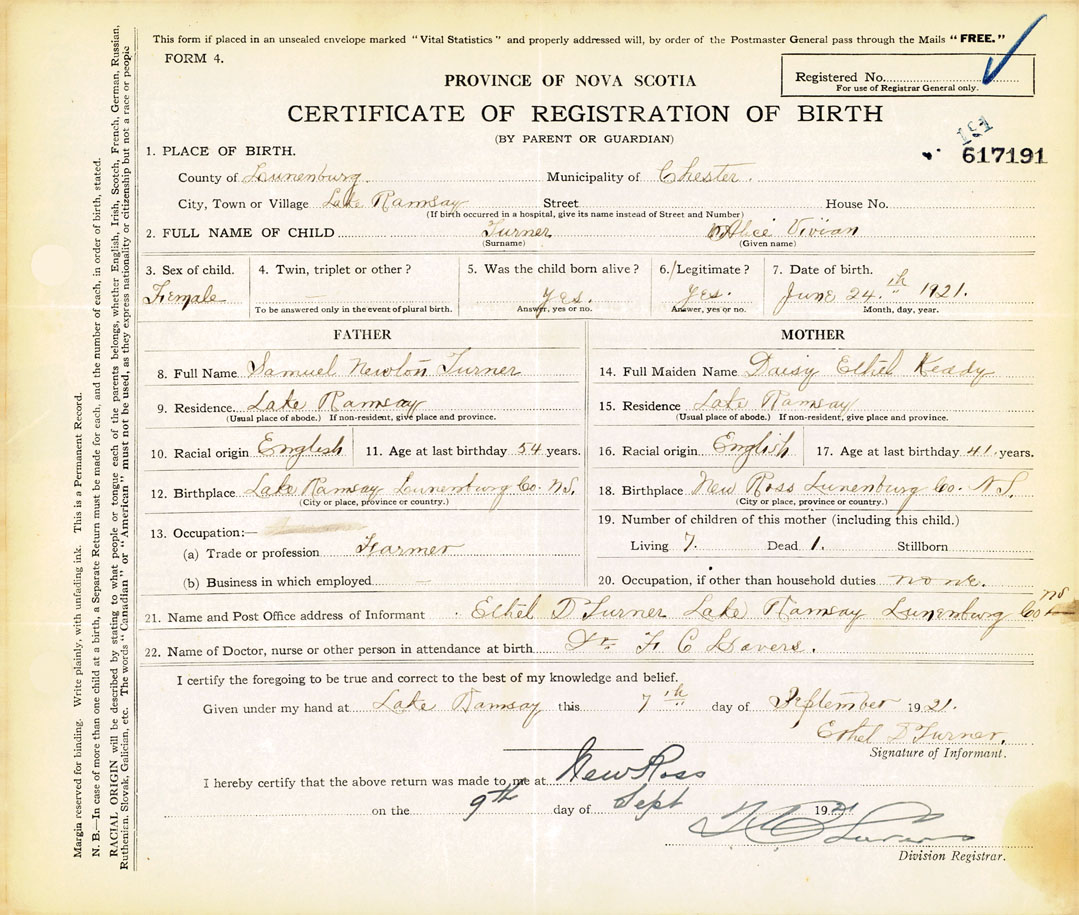 This form if placed in an unsealed envelope marked "Vital Statistics" and properly addressed will, by order of the Postmaster General pass through the Mails "FREE."
FORM 4.
PROVINCE OF NOVA SCOTIA
Registered No.
For use of Registrar General only.
CERTIFICATE OF REGISTRATION OF BIRTH
(BY PARENT OR GUARDIAN)
191
617191
1. PLACE OF BIRTH.
County of Lunenburg. Municipality of Chester.
City, Town or Village Lake Ramsay Street House No.
(If birth occurred in a hospital, give its name instead of Street and Number)
2. FULL NAME OF CHILD Turner Alice Vivian
(Surname) (Given name)
3. Sex of child. 4. Twin, triplet or other? 5. Was the child born alive? 6. Legitimate? 7. Date of birth.
Female — yes. yes. June 24th 1921.
To be answered only in the event of plural birth. Answer, yes or no. Answer, yes or no. Month, day, year.
FATHER MOTHER
8. Full Name Samuel Newton Turner 14. Full Maiden Name Daisy Ethel Keddy
9. Residence. Lake Ramsay 15. Residence Lake Ramsay
(Usual place of abode.) If non-resident, give place and province. (Usual place of abode.) If non-resident, give place and province.
10. Racial origin English 11. Age at last birthday 54 years. 16. Racial origin English 17. Age at last birthday 41 years.
12. Birthplace Lake Ramsay Lunenburg Co. N.S. 18. Birthplace New Ross Lunenburg Co. N.S.
(City or place, province or country.) (City or place, province or country.)
13. Occupation:— 19. Number of children of this mother (including this child.)
(a) Trade or profession Farmer Living 7. Dead 1. Stillborn
(b) Business in which employed — 20. Occupation, if other than household duties none.
21. Name and Post Office address of Informant Ethel D Turner Lake Ramsay Lunenburg Co NS
22. Name of Doctor, nurse or other person in attendance at birth Dr. F. C
I certify the foregoing to be true and correct to the best of my knowledge and belief.
Given under my hand at Lake Ramsay this 7th day of September 1921.
Ethel D Turner.
Signature of Informant.
I hereby certify that the above return was made to me at New Ross
on the 9th day of Sept 1921
Division Registrar.
Margin reserved for binding. Write plainly, with unfading ink. This is a Permanent Record.
N. B.—In case of more than one child at a birth, a Separate Return must be made for each, and the number of each, in order of birth, stated.
RACIAL ORIGIN will be described by stating to what people or tongue each of the parents belongs, whether English, Irish, Scotch, French, German, Russian,
Ruthenien, Slovak, Galician, etc. The words "Canadian" or "American" must not be used, as they express nationality or citizenship but not a race or people